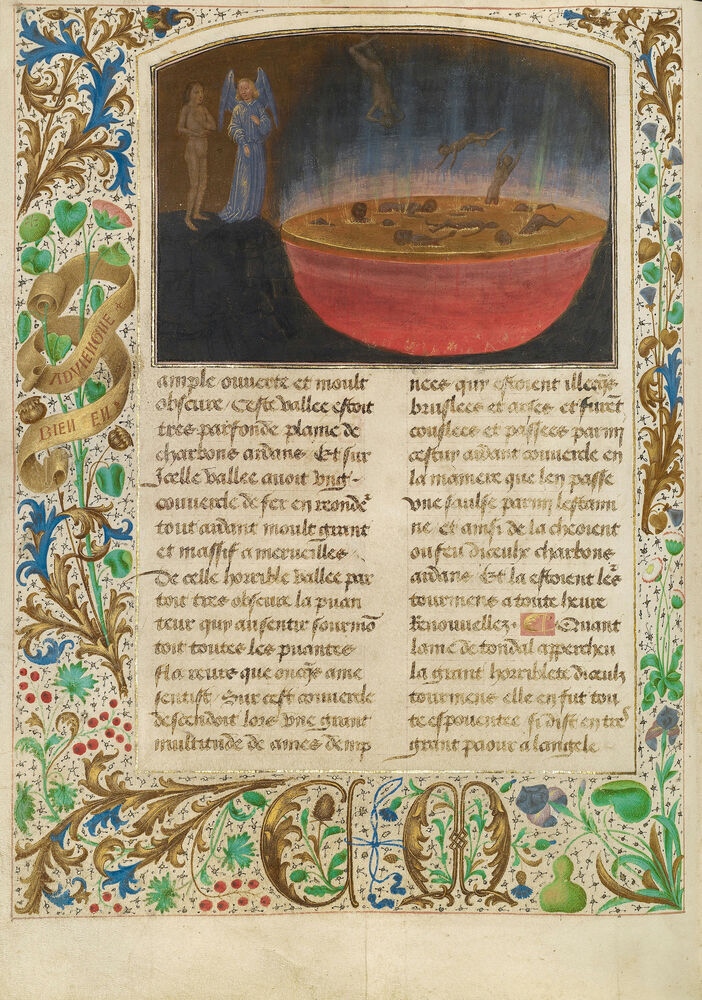 ADVIENGNE
BIEN EN
ample ouuerte et moult
obscure / Ceste vallee estoit
tres parfonde plaine de
charbons ardans . Et sur
Jcelle vallee auoit vng
couuercle de fer en ronde
tout ardant moult grant
et massif a merueilles
De celle horrible vallee par
tout tres obscure la puan
teur quy au sentir sourmo
toit toutes les puantes
flaireurs que oncqs ame
sentist / Sur cest couuercle
descendoit lors vne grant
multitude de ames demp
nees quy estoient illecqs
bruslees et arses et furet
coulees et passees parmy
cestui ardant couuercle en
la maniere que len passe
vne saulse parmy lestami
ne et ainsi de la cheoient
ou feu diceulx charbons
ardans . Et la estoient les
tourmens a toute heure
Renouuellez . Quant
lame de tondal appercheu
la grant horriblete diceulx
tourmens elle en fut tou
te espouentee si dist en tres
grant paour a langele
C M